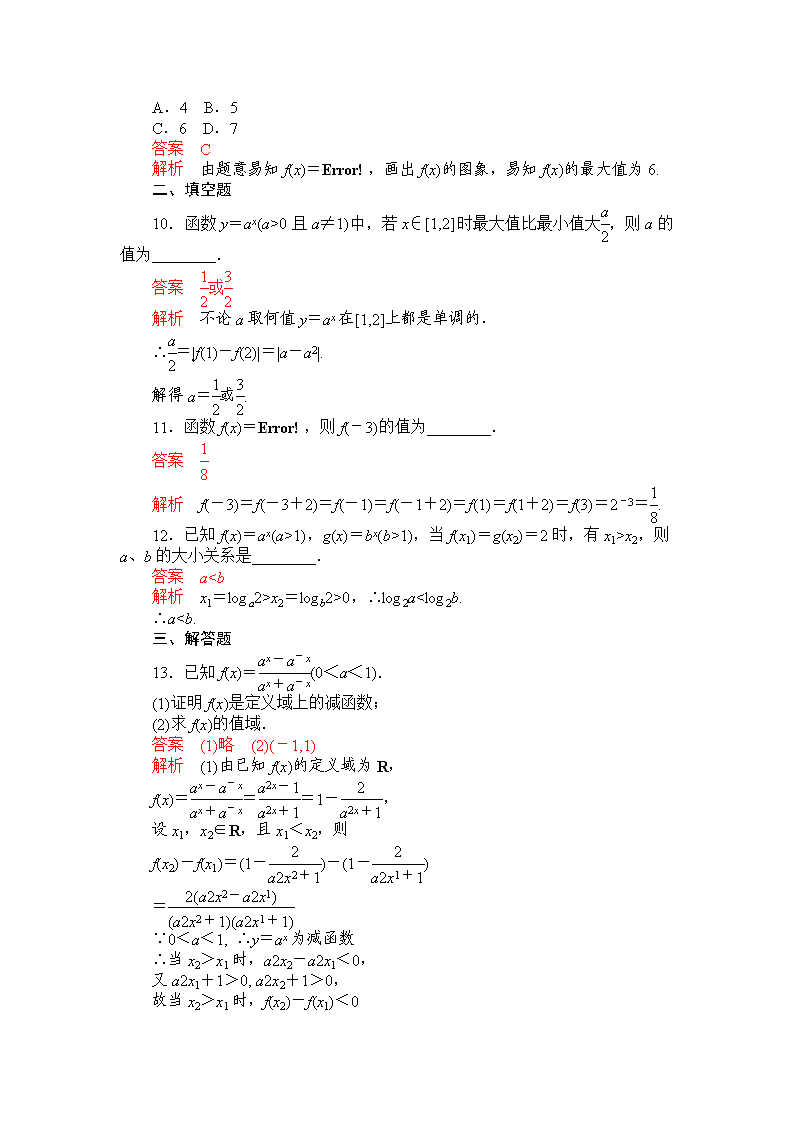 A．4　B．5
C．6　D．7
答案　C
解析　由题意易知 f(x)＝Error!，画出 f(x)的图象，易知 f(x)的最大值为 6.
二、填空题
10．函数 y＝aˣ(a>0 且 a≠1)中，若 x∈[1,2]时最大值比最小值大a/2，则 a 的
值为________．
答案　1/2或3/2
解析　不论 a 取何值 y＝aˣ在[1,2]上都是单调的．
∴a/2＝|f(1)－f(2)|＝|a－a²|.
解得 a＝1/2或3/2.
11．函数 f(x)＝Error!，则 f(－3)的值为________．
答案　1/8
解析　f(－3)＝f(－3＋2)＝f(－1)＝f(－1＋2)＝f(1)＝f(1＋2)＝f(3)＝2⁻³＝1/8.
12．已知 f(x)＝aˣ(a>1)，g(x)＝bˣ(b>1)，当 f(x₁)＝g(x₂)＝2 时，有 x₁>x₂，则
a、b 的大小关系是________．
答案　a<b
解析　x₁＝logₐ2>x₂＝log_b2>0，∴log₂a<log₂b.
∴a<b.
三、解答题
13．已知 f(x)＝(aˣ－a⁻ˣ)/(aˣ＋a⁻ˣ)(0＜a＜1)．
(1)证明 f(x)是定义域上的减函数；
(2)求 f(x)的值域．
答案　(1)略　(2)(－1,1)
解析　(1)由已知 f(x)的定义域为 R，
f(x)＝(aˣ－a⁻ˣ)/(aˣ＋a⁻ˣ)＝(a²ˣ－1)/(a²ˣ＋1)＝1－2/(a²ˣ＋1)，
设 x₁，x₂∈R，且 x₁＜x₂，则
f(x₂)－f(x₁)＝(1－2/(a2x₂＋1))－(1－2/(a2x₁＋1))
＝2(a2x₂－a2x₁)/((a2x₂＋1)(a2x₁＋1))
∵0＜a＜1, ∴y＝aˣ 为减函数
∴当 x₂＞x₁ 时，a2x₂－a2x₁＜0，
又 a2x₁＋1＞0, a2x₂＋1＞0，
故当 x₂＞x₁ 时，f(x₂)－f(x₁)＜0